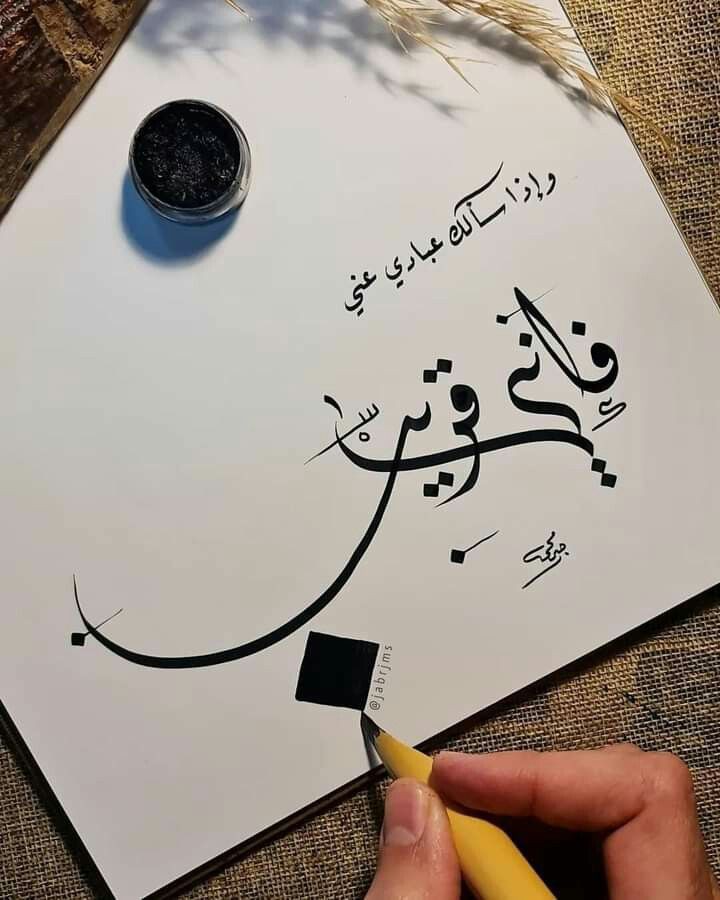 وإذا سألك عبادي عني
فإني قريب
@jabrjms